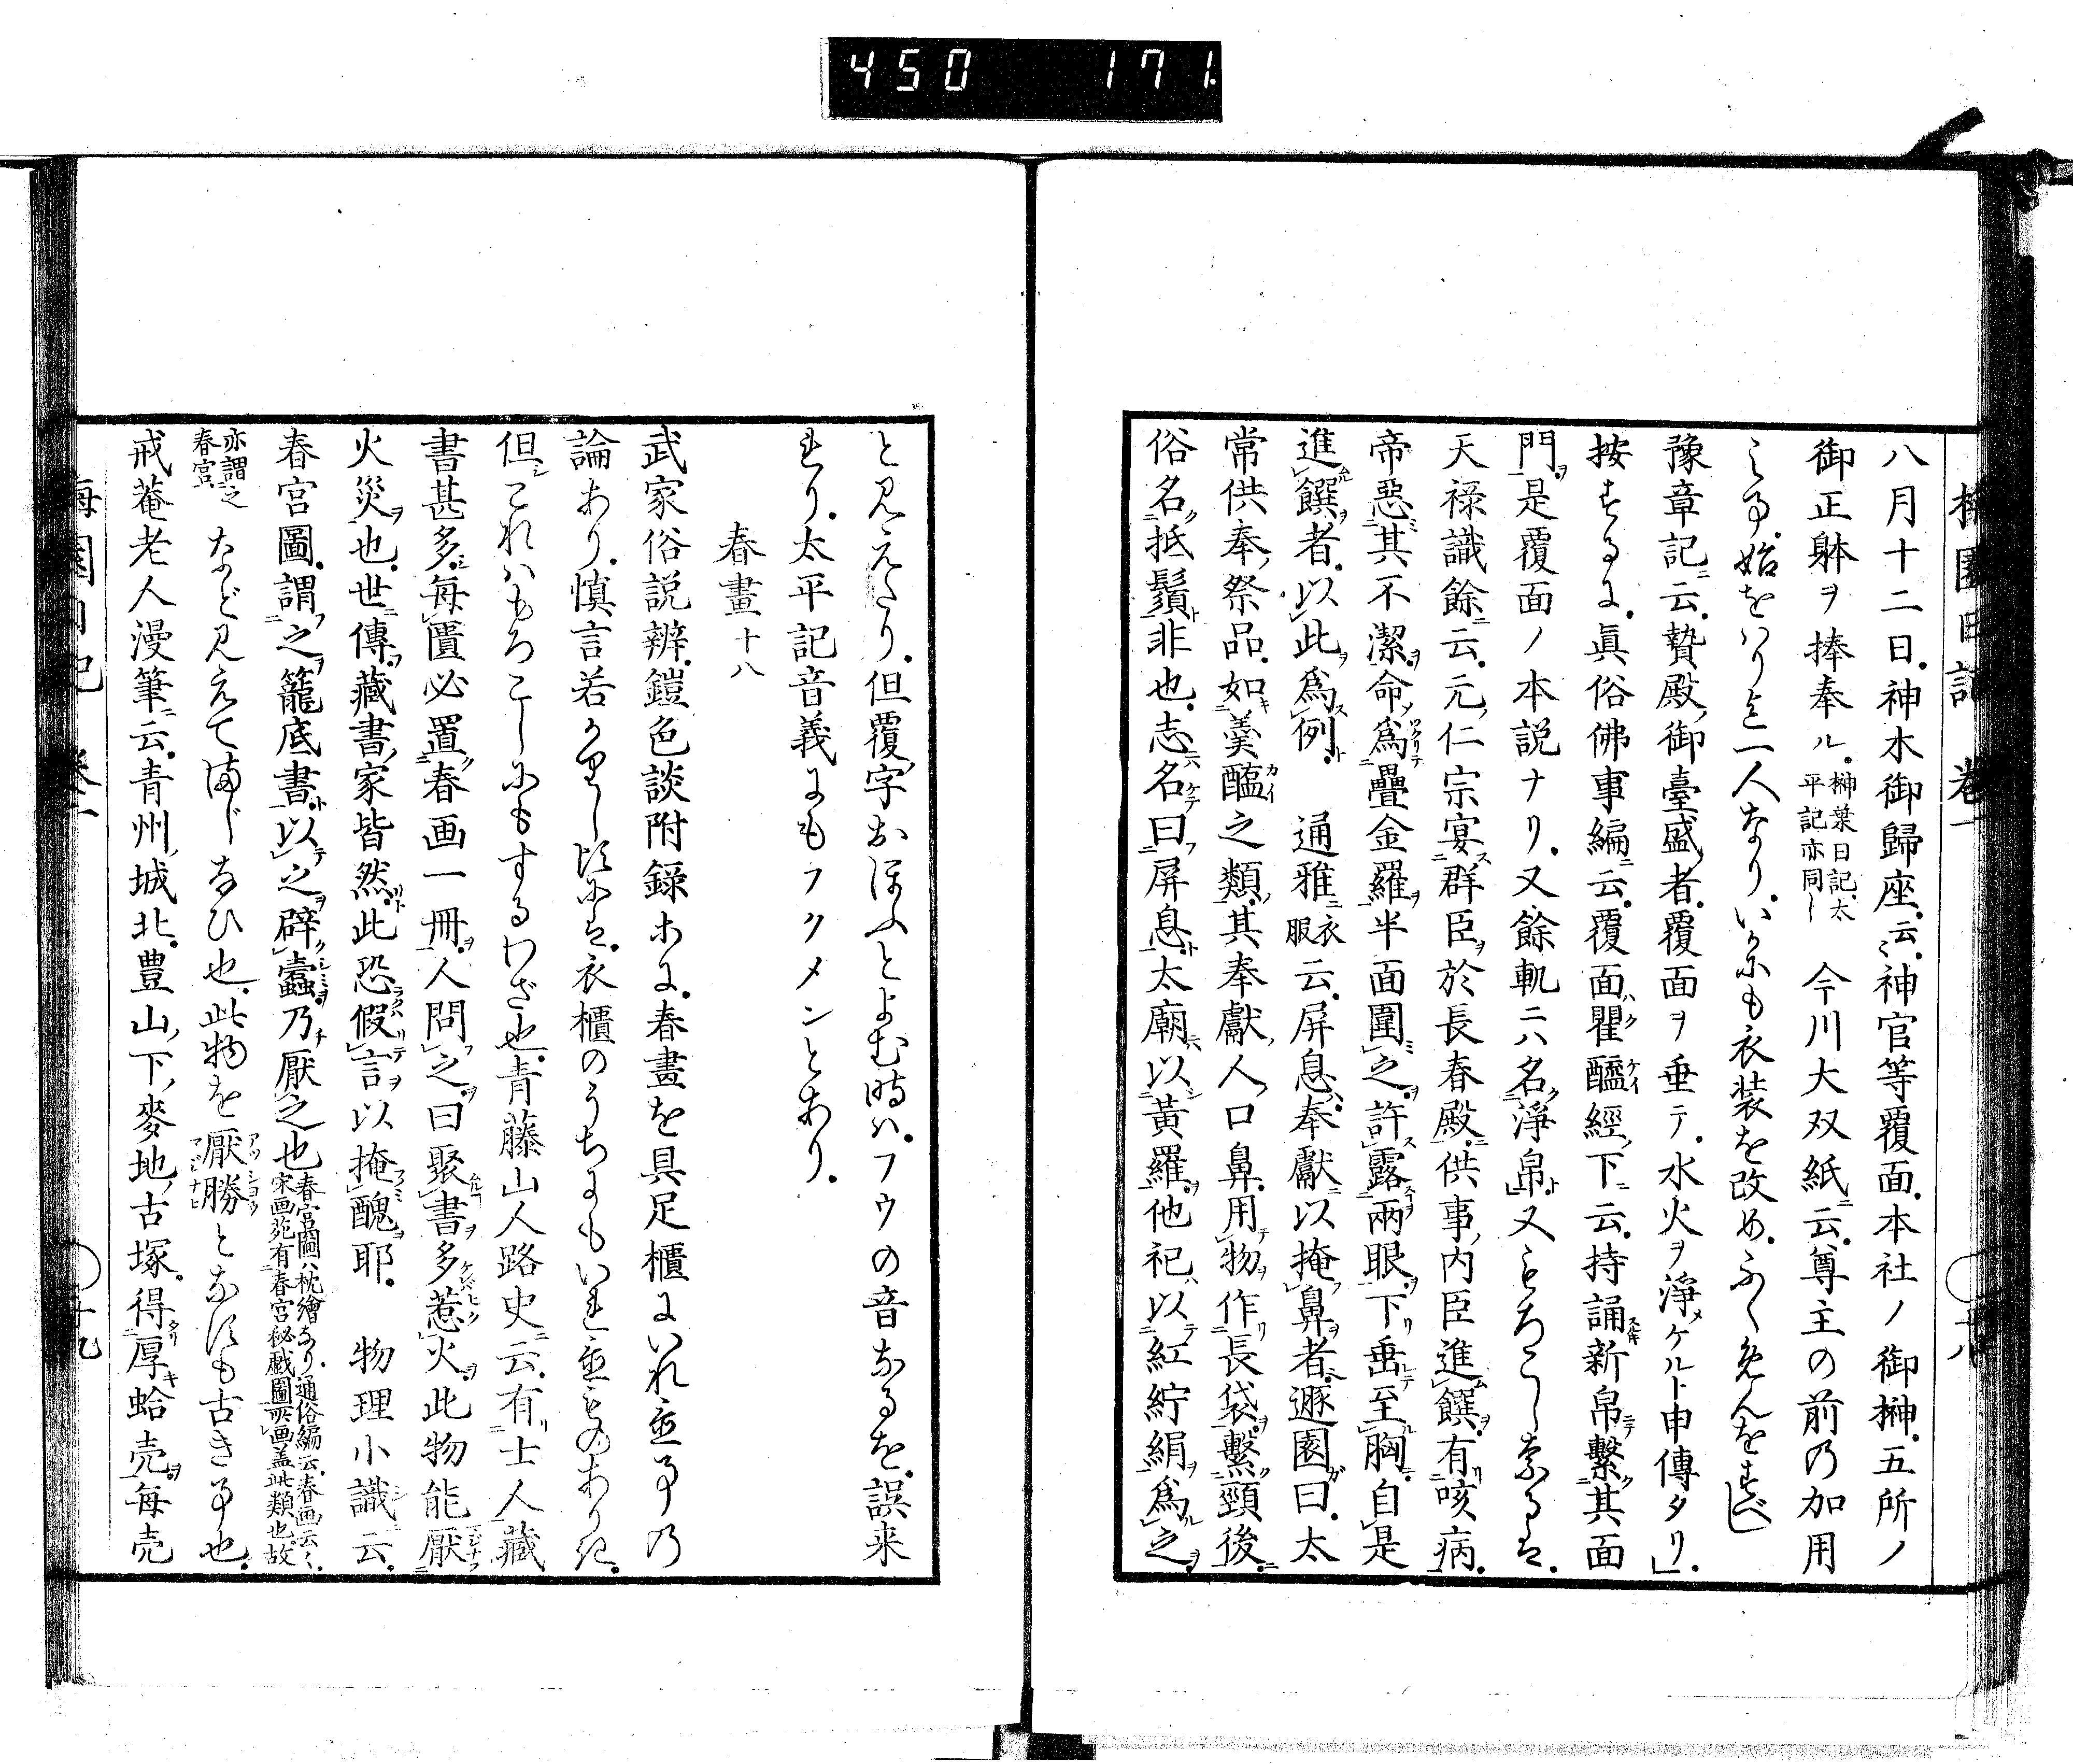 450 171
梅園日記 巻一 十八
八月十二日神木御歸座云々神官等覆面本社ノ御榊五所ノ
御正躰ヲ捧奉ル榊葉日記太平記亦同し 今川大双紙ニ云尊主の前の加用
之事始をハりと一人なりいかにも衣装を改めふくめんをすべし
豫章記ニ云贄殿ノ御臺盛ノ者覆面ヲ垂テ水火ヲ淨メケルト申傳タリ
按ずるに眞俗佛事編ニ云覆面瞿醯經ノ下ニ云持誦新帛ニテ繫ク其面
門ヲ是覆面ノ本説ナリ又餘軌ニハ名ク淨帛ト又もろこしなるは
天祿識餘ニ云元ノ仁宗宴ス群臣ヲ於長春殿ニ供事ノ内臣進ム饌ヲ有リ咳病
帝惡ミ其不潔ヲ命ノ爲ツクリテ疊金羅ヲ半面圍ミ之ヲ許ス露スヿヲ兩眼ヲ下リ垂レテ至ル胸ニ自是
進ムル饌ヲ者以此ヲ爲ス例ト 通雅ニ衣服云屏息ハ奉獻ニ以掩フ鼻ヲ者遯園ガ曰太
常供奉ノ祭品如キ羹醢カイ之類ノ其奉獻ノ人ノ口鼻用テ物ヲ作リ長袋ヲ繫ク頸後ニ
俗名ク抵鬚ト非也志ニハ名ケテ曰フ屏息ト太廟ニハ以シ黄羅ヲ他祀ハ以テ紅紵絹ヲ爲ル之ヲ
と見えたり但覆ノ字おほふとよむ時ハフウの音なるを誤来
れり太平記音義にもフクメンとあり
春畫十八
武家俗説辨鎧色談附録等に春畫を具足櫃にいれ置事の
論あり慎言若かりし頃は衣櫃のうちにもいれ置ものありき
但しこれハもろこしにもするわざ也青藤山人路史ニ云有リ士人藏
書甚多シ毎匱必置ク春画一冊ヲ人問フ之ヲ曰聚書ヲ多惹火ヲ此物能厭マジナフ
火災ヲ也世ニ傳フ藏書ノ家皆然リト此恐ラクハ假リテ言ヲ以掩フミ醜ヲ耶 物理小識ニ云
春宮圖謂フ之ヲ籠底書ト以テ之ヲ辟ク蠧ヲ乃チ厭之也春宮圖ハ枕繪なり通俗編云春画云々宋画苑有春宮秘戲圖所画盖此類也故
亦謂之春宮 など見えてまじなひ也此物を厭勝アツシヨウマジナヒとなすも古き事也
戒菴老人漫筆ニ云青州ノ城北豊山ノ下ノ麥地ノ古塚得タリ厚キ蛤売ヲ毎売
梅園日記 巻一 十九